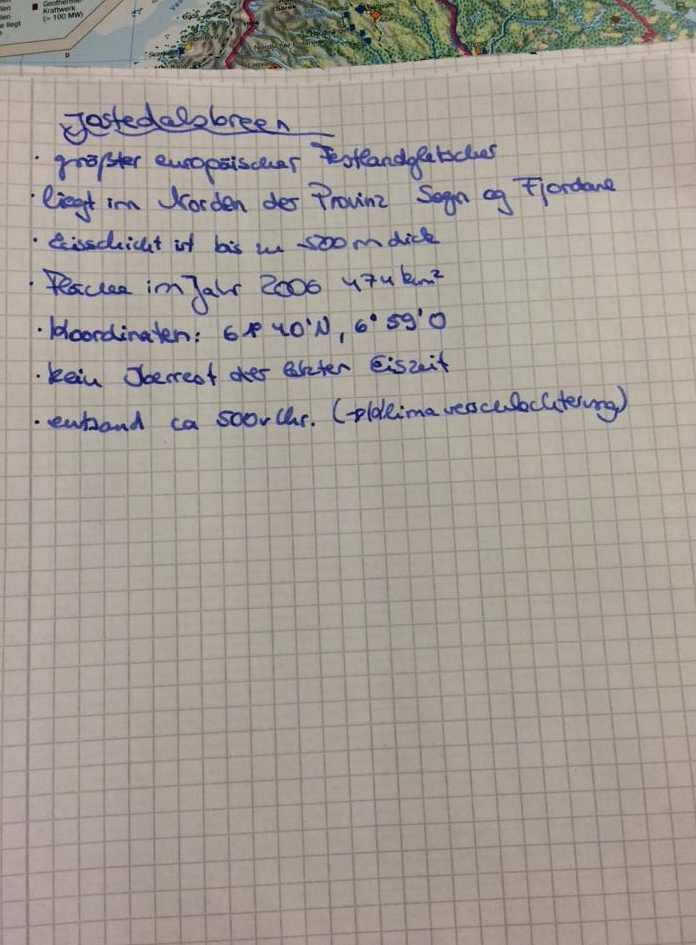 Geothermie-
Kraftwerk
(> 100 MW)
liegt
Jostedalsbreen
· größter europäischer Festlandgletscher
· liegt im Norden der Provinz Sogn og Fjordane
· Eisschicht ist bis zu 500 m dick
· Fläche im Jahr 2006 474 km²
· Koordinaten: 61° 40'N, 6° 59'O
· kein Überrest der letzten Eiszeit
· entstand ca 500 v Chr. (→ Klimaverschlechterung)